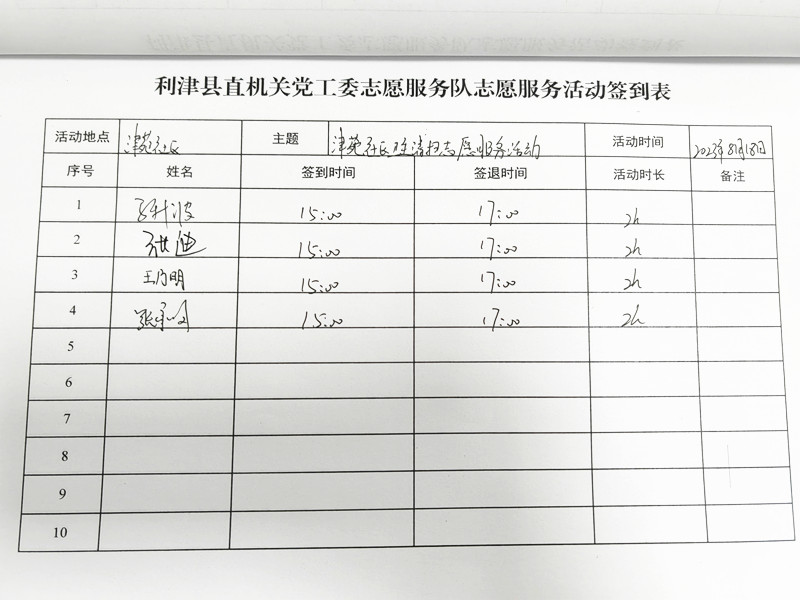 利津县直机关党工委志愿服务队志愿服务活动签到表
活动地点 津苑社区 主题 津苑社区 清扫志愿服务活动 活动时间 2023年8月18日
序号 姓名 签到时间 签退时间 活动时长 备注
1 15:00 17:00 2h
2 张迪 15:00 17:00 2h
3 王乃明 15:00 17:00 2h
4 15:00 17:00 2h
5
6
7
8
9
10